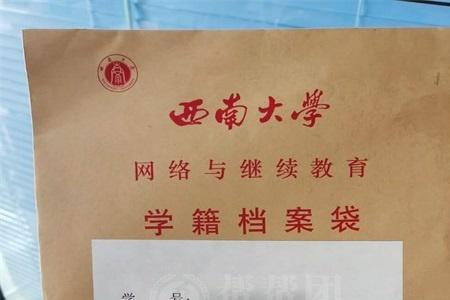 西南大学
网络与继续教育
学籍档案袋
学 号:
帮帮团